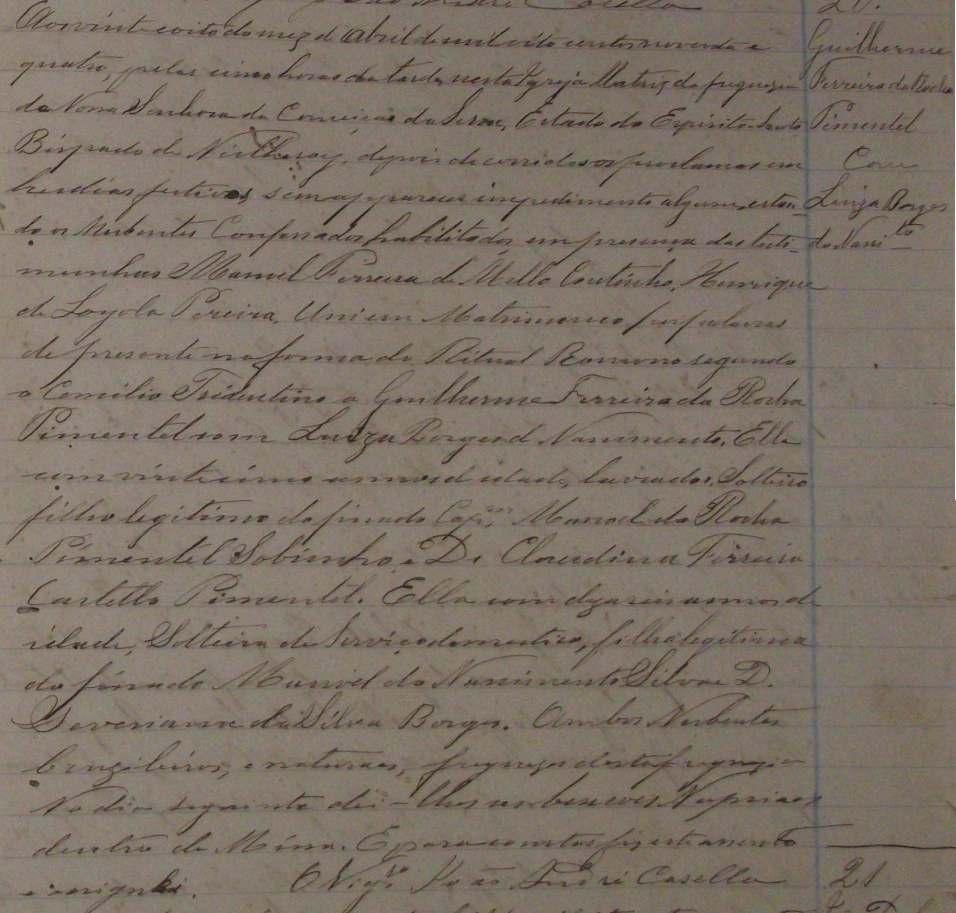 20.
Aos vinte e oito do mez d'Abril de mil oito centos noventa e
quatro, pelas cinco horas da tarde nesta Igreja Matriz da freguezia
de Nossa Senhora da Conceição da Serra, Estado do Espirito-Santo
Bispado de Nictheroy, depois de corridos os proclamas em
tres dias festivos, sem apparecer impedimento algum, estan-
do os Nubentes Confessados, habilitados em presença das testi-
munhas Manoel Ferreira de Mello Coutinho, Henrique
de Loyola Pereira, Uni em Matrimonio por palavras
de presente na forma do Ritual Romano segundo
o Concilio Tridentino a Guilherme Ferreira da Rocha
Pimentel com Luiza Borges d Nascimento. Elle
com vinte cinco annos d idade, lavrador, Solteiro
filho legitimo do finado Capm Manoel da Rocha
Pimentel Sobrinho, e D. Claudina Ferreira
Castello Pimentel. Ella com dezaseis annos d
idade, Solteira de Serviço domestico, filha legitima
do finado Manoel do Nascimento Silva e D.
Severianna da Silva Borges. Ambos Nubentes
brazileiros, e naturaes, freguezes desta freguezia
No dia seguinte dei-lhes as bençãos Nupciaes
dentro da Missa. E para constar fiz este assento
e assignei. O Vigro João André Casella
Guilherme
Ferreira da Rocha
Pimentel
Com
Luiza Borges
do Nascito
21